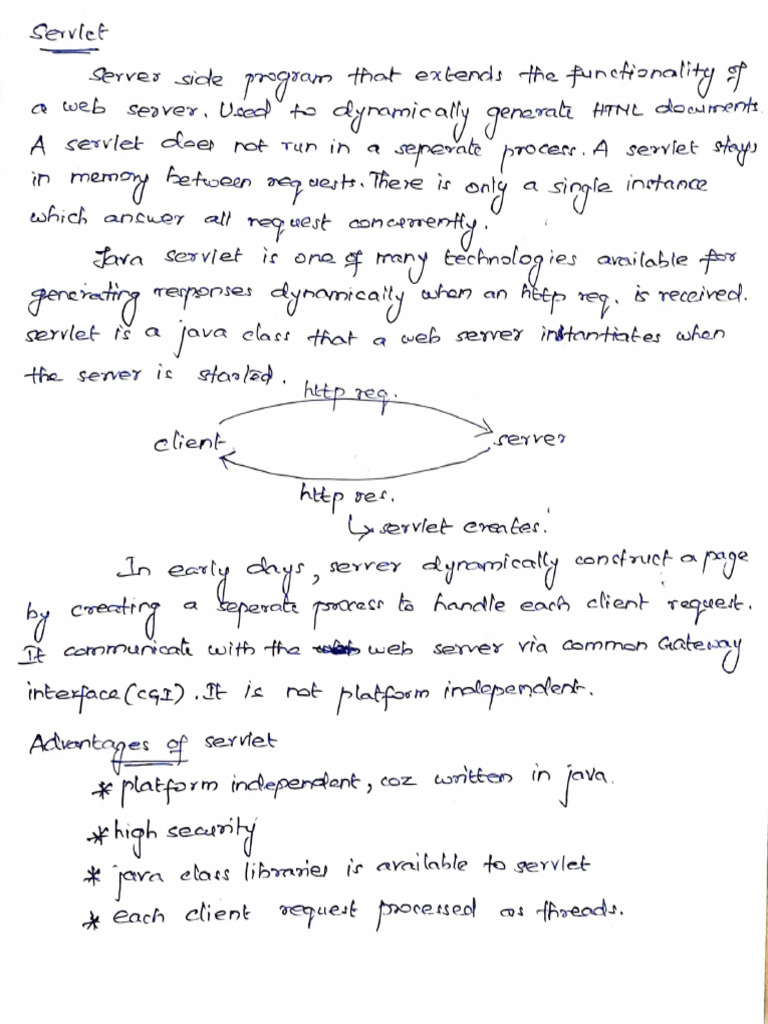 Servlet
Server side program that extends the functionality of
a web server. Used to dynamically generate HTML documents.
A servlet does not run in a seperate process. A servlet stays
in memory between requests. There is only a single instance
which answer all request concurrently.
Java servlet is one of many technologies available for
generating responses dynamically when an http req. is received.
servlet is a java class that a web server instantiates when
the server is started.
http req.
client server
http res.
↳ servlet creates.
In early days, server dynamically construct a page
by creating a seperate process to handle each client request.
It communicate with the web server via common Gateway
interface (CGI). It is not platform independent.
Advantages of servlet
* platform independent, coz written in java.
* high security
* java class libraries is available to servlet
* each client request processed as threads.